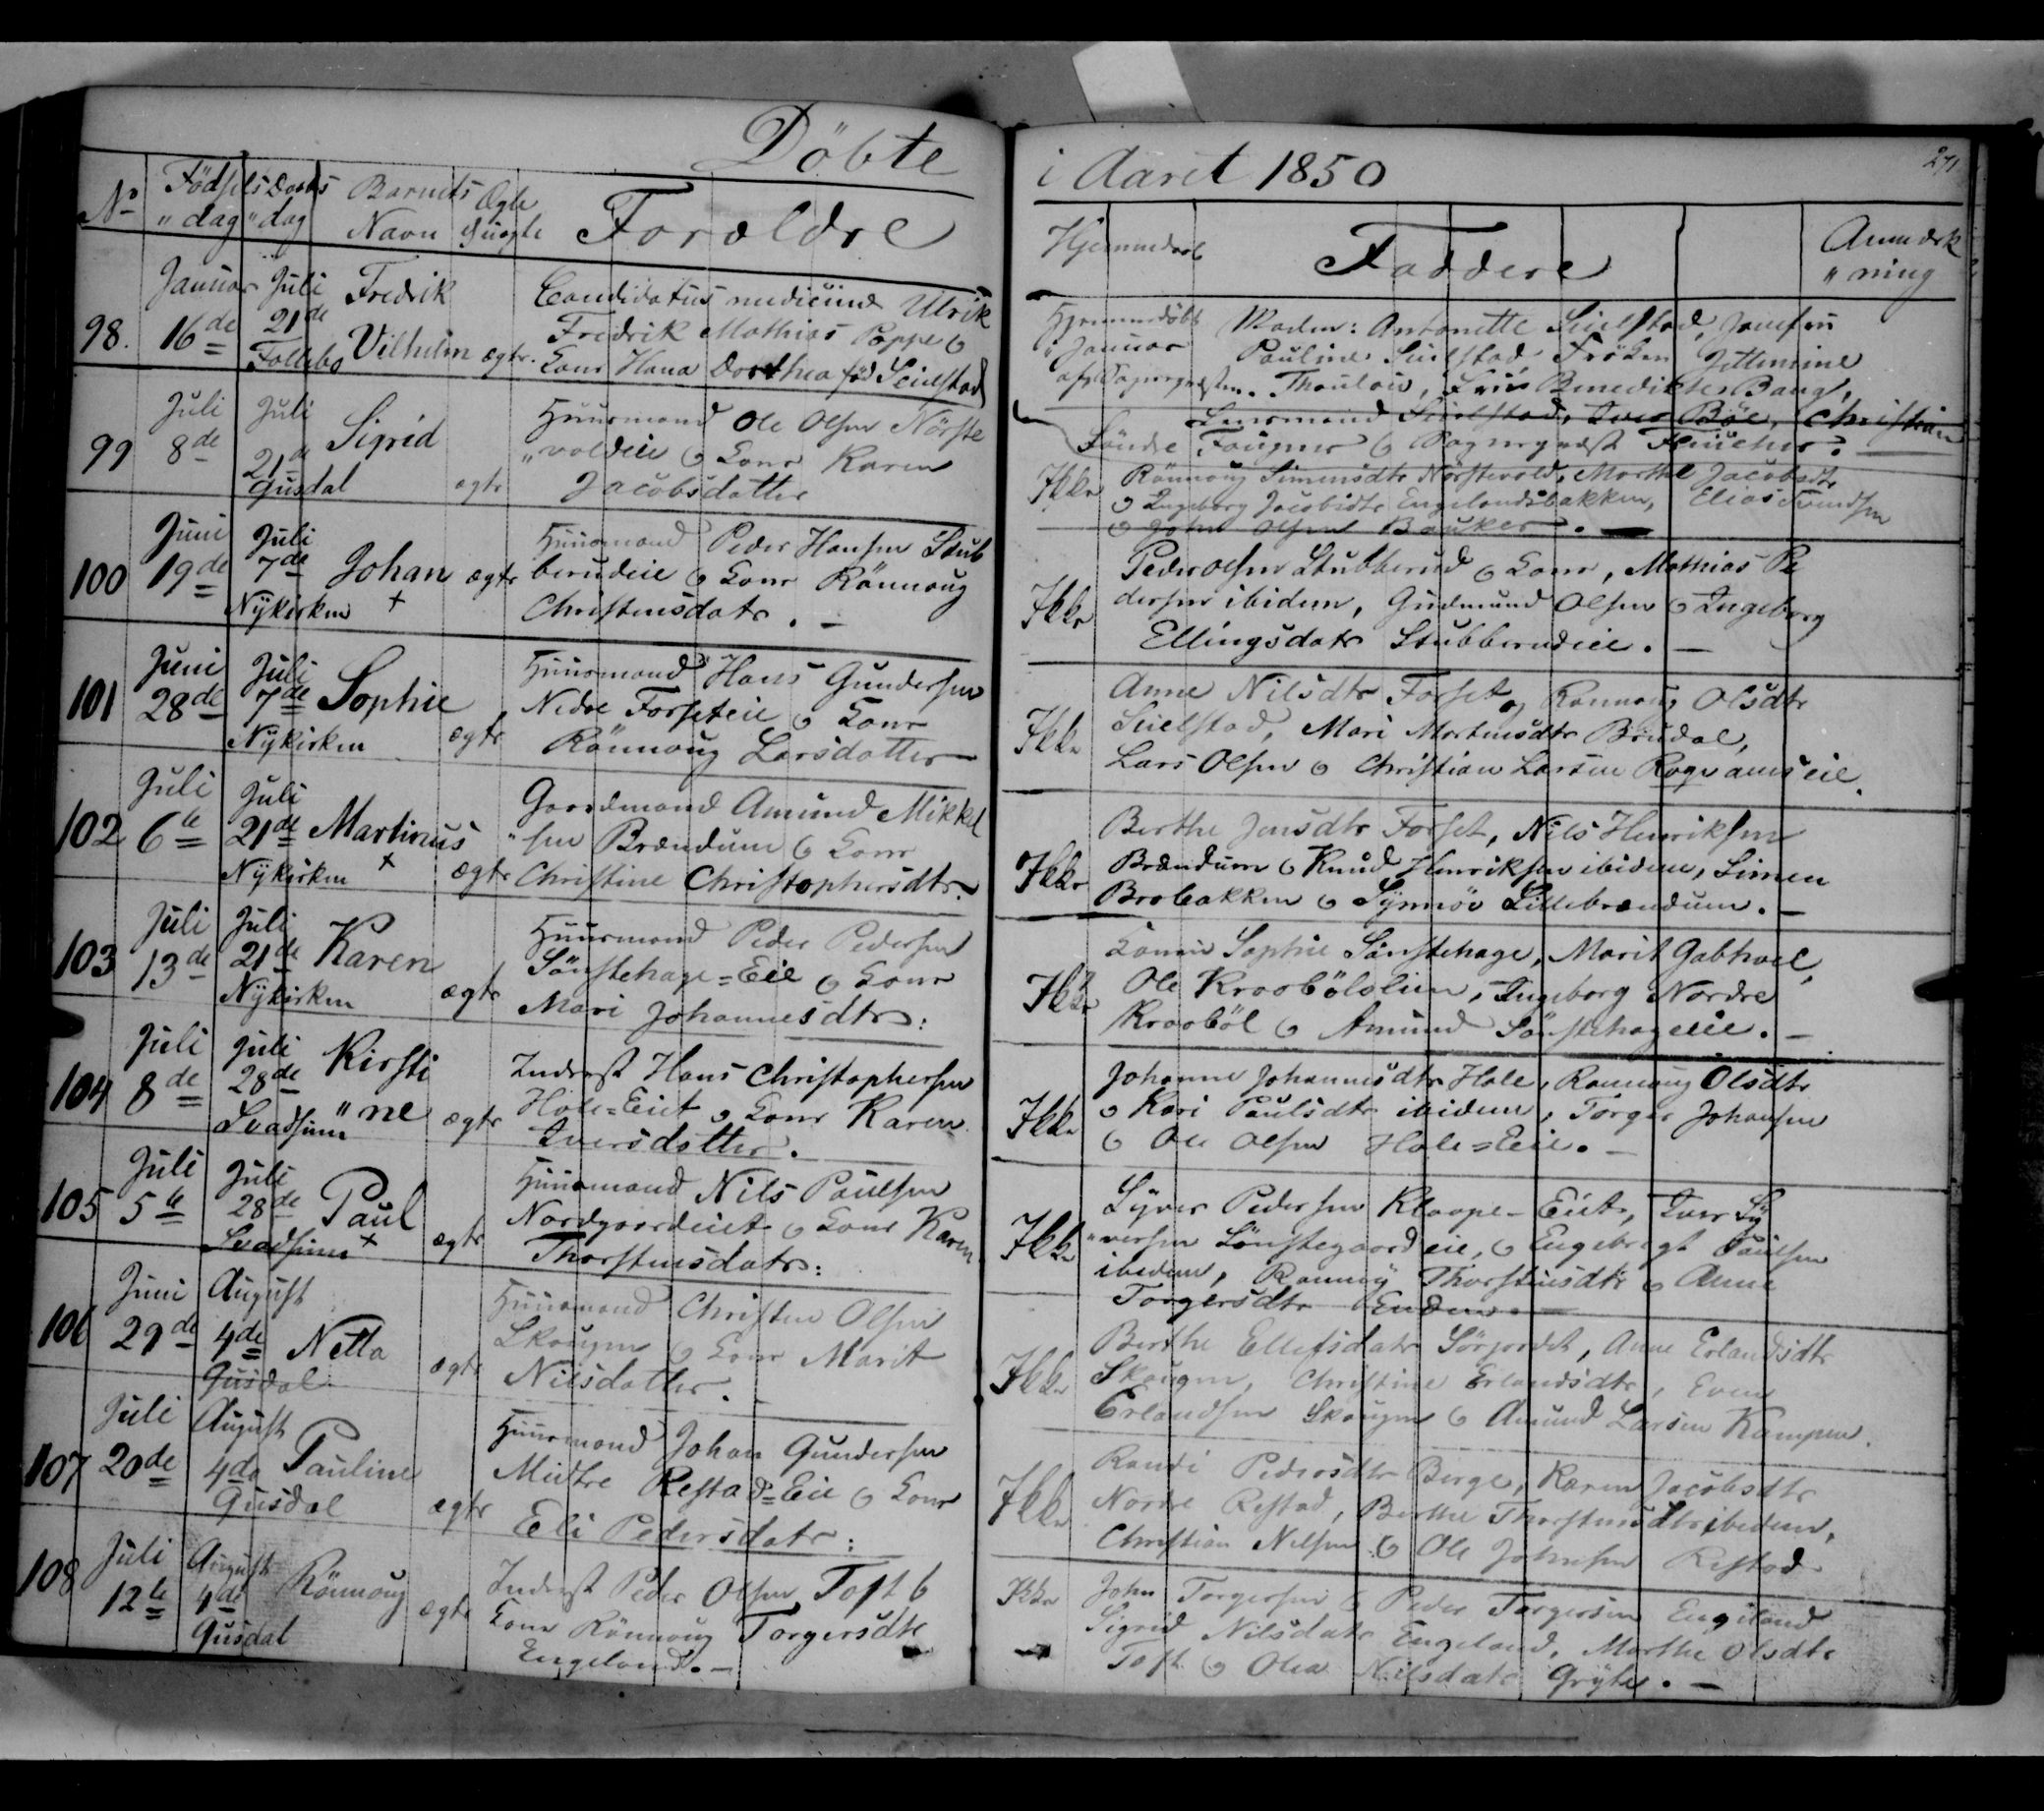 Döbte
i Aaret 1850
271
No
Födsels
"dag
Daabs
"dag
Barnets
Navn
Ægte
Uægte
Forældre
Hjemmedøb
Faddere
Anmærk
"ning
98.
Januar
16de
Juli
21de
Follebo
Fredrik
Vilhelm
ægte.
Candidatus medicinæ Ulrik
Fredrik Mathias Poppe og
Kone Hana Dorthea fød Seielstad
Hjemmedöbt
Januar
Moderen: Antonette Seielstad, Josefine
Pauline Seielstad, Frøken Jettemine
Thaulow, Benedikte Bang,
Lensmand Seielstad, Iver Böe, Christian
Söndre Fougner og Fliucher.
99
Juli
8de
Juli
21de
Gusdal
Sigrid
ægte
Huusmand Ole Olsen Nörste
"voldeie og Kone Karen
Jacobsdatter
Ikke
Rönnoug Simensdtr Nörstevold, Marthe Jacobsdtr
og Ingeborg Jacobsdtr Engelandsbakken, Elias Tron̈dsen
og John Olsen Bauker.
100
Juni
19de
Juli
7de
Nÿkirken
Johan
+
ægte
Huusmand Peder Hansen Stub
berudeie og Kone Rönnoug
Christensdatr.
Ikke
Peder Olsen Stubberud og Kone, Mathias Pe
dersen ibidem, Gudmund Olsen og Ingeborg
Ellingsdatr Stubberudeie.
101
Juni
28de
Juli
7de
Nÿkirken
Sophie
ægte
Huusmand Hans Gundersen
Nedre Forseteie og Kone
Rönnoug Larsdatter
Ikke
Anne Nilsdtr Forset og Rönnoug Olsdtr
Seielstad, Mari Mortensdtr Brudal,
Lars Olsen og Christian Larsen Rognamseie.
102
Juli
6te
Juli
21de
Nÿkirken
Martinus
+
ægte
Gaardmand Amund Mikkel
"sen Brændum og Kone
Christine Christophersdtr.
Ikke
Berthe Jensdtr Forset, Nils Henriksen
Brændum og Knud Henriksen ibidem, Simen
Brobakken og Synnöv Lillebrændum.
103
Juli
13de
Juli
21de
Nÿkirken
Karen
ægte
Huusmand Peder Pedersen
Sönstehage=Eie og Kone
Mari Johannesdtr:
Ikke
Konen Sophie Sönstehage, Marit Gabhuel,
Ole Kroobölslien, Ingeborg Nordre
Krooböl og Amund Sönstehageeie.
104
Juli
8de
Juli
28de
Svadsum
Kirsti
"ne
ægte
Inderst Hans Christophersen
Hole=Eiet og Kone Karen
Iversdatter.
Ikke
Johanne Johannesdtr Hole, Rönnoug Olsdtr
og Kari Paulsdtr ibidem, Torger Johansen
og Ole Olsen Hole=Eie.
105
Juli
5te
Juli
28de
Svadsum
Paul
+
ægte
Huusmand Nils Paulsen
Nordgaardeiet og Kone Karen
Thorstensdatr:
Ikke
Syver Pedersen Klaape=Eiet, Iver Sÿ
"versen Sönstegaardeie, og Engebregt Paulsen
ibidem, Rönnoug Thorstensdtr og Anne
Torgersdtr Enden.
106
Juni
29de
August
4de
Gusdal
Netta
ægte
Huusmand Christen Olsen
Skougen og Kone Marit
Nilsdatter.
Ikke
Berthe Ellefsdatr Sörjordet, Anne Erlandsdtr
Skougen, Christine Erlandsdtr, Even
Erlandsen Skougen og Amund Larsen Kampen.
107
Juli
20de
August
4de
Gusdal
Pauline
ægte
Huusmand Johan Gundersen
Midtre Restad=Eie og Kone
Eli Pedersdatr:
Ikke
Randi Pedersdtr Berge, Karen Jacobsdtr
Nordre Restad, Berthe Thorstensdtr ibidem,
Christian Nilsen og Ole Johnsen Restad
108
Juli
12te
August
4de
Gusdal
Rönnoug
ægte
Inderst Peder Olsen Toft og
Kone Rönnoug Torgersdtr
Engeland.
Ikke
John Torgersen og Peder Torgersen Engeland
Sigrid Nilsdatr Engeland, Marthe Olsdtr
Toft og Olea Nilsdatr Gryte.